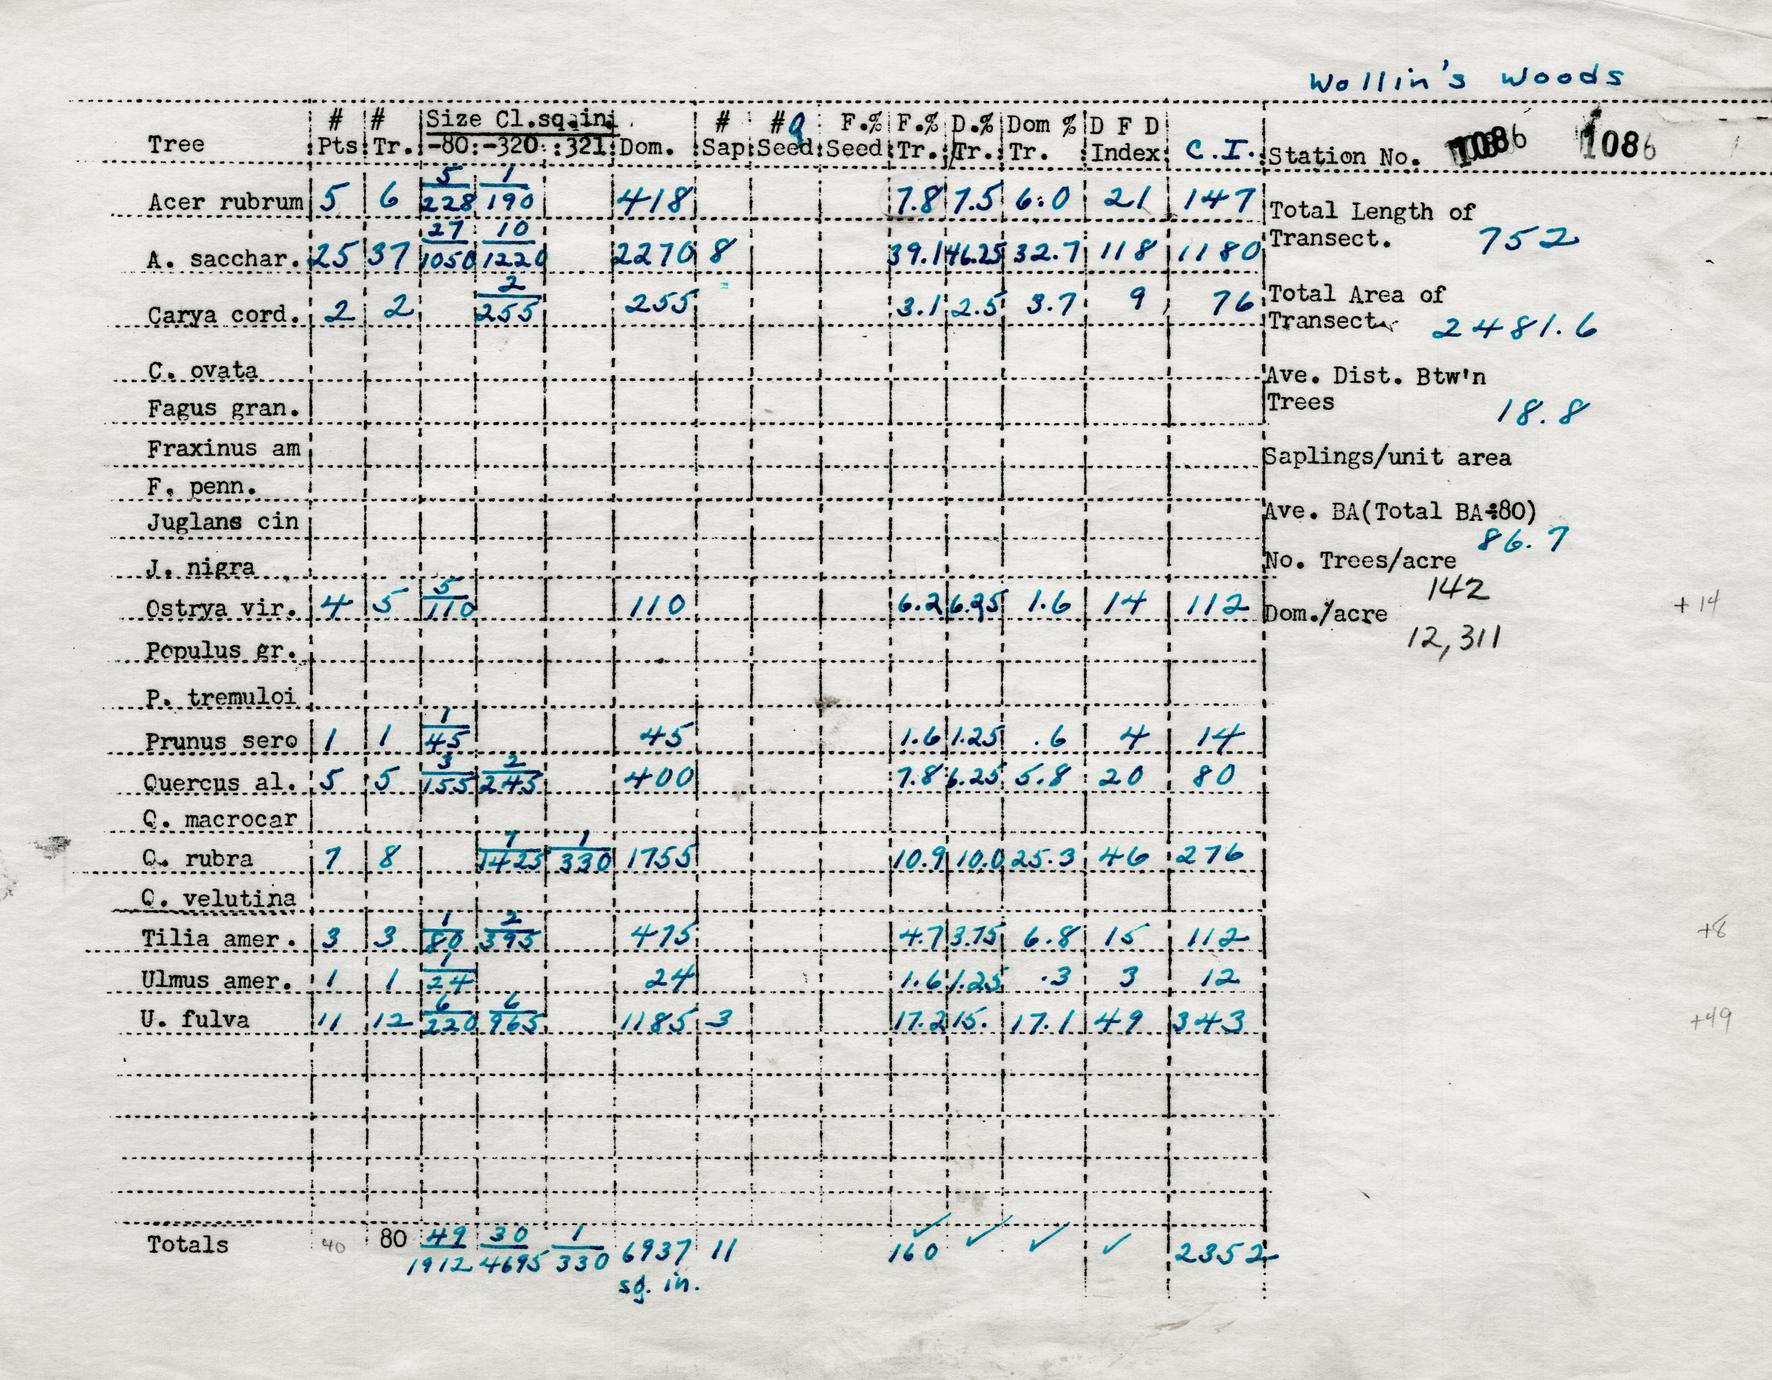 Wollin's Woods
Tree # Pts # Tr. Size Cl.sq.in. -80:-320 :321 Dom. # Sap # Seed F.% Seed F.% Tr. D.% Tr. Dom % Tr. D F D Index C.I. Station No. 1086 1086
Acer rubrum 5 6 5/228 1/190 418 7.8 7.5 6.0 21 147
Total Length of Transect. 752
A. sacchar. 25 37 27/1050 10/1220 2270 8 39.1 46.25 32.7 118 1180
Carya cord. 2 2 2/255 255 3.1 2.5 3.7 9 76
Total Area of Transect 2481.6
C. ovata
Ave. Dist. Btw'n Trees 18.8
Fagus gran.
Fraxinus am
Saplings/unit area
F. penn.
Juglans cin
Ave. BA(Total BA÷80) 86.7
J. nigra
No. Trees/acre 142
Ostrya vir. 4 5 5/110 110 6.2 6.25 1.6 14 112
Dom./acre 12,311
+14
Populus gr.
P. tremuloi
Prunus sero 1 1 1/45 45 1.6 1.25 .6 4 14
Quercus al. 5 5 3/155 2/245 400 7.8 6.25 5.8 20 80
Q. macrocar
Q. rubra 7 8 7/1425 1/330 1755 10.9 10.0 25.3 46 276
Q. velutina
Tilia amer. 3 3 1/80 2/395 475 4.7 3.75 6.8 15 112
+8
Ulmus amer. 1 1 1/24 24 1.6 1.25 .3 3 12
U. fulva 11 12 6/220 6/965 1185 3 17.2 15. 17.1 49 343
+49
Totals 40 80 49/1912 30/4695 1/330 6937 sq. in. 11 160 ✓ ✓ ✓ ✓ 2352